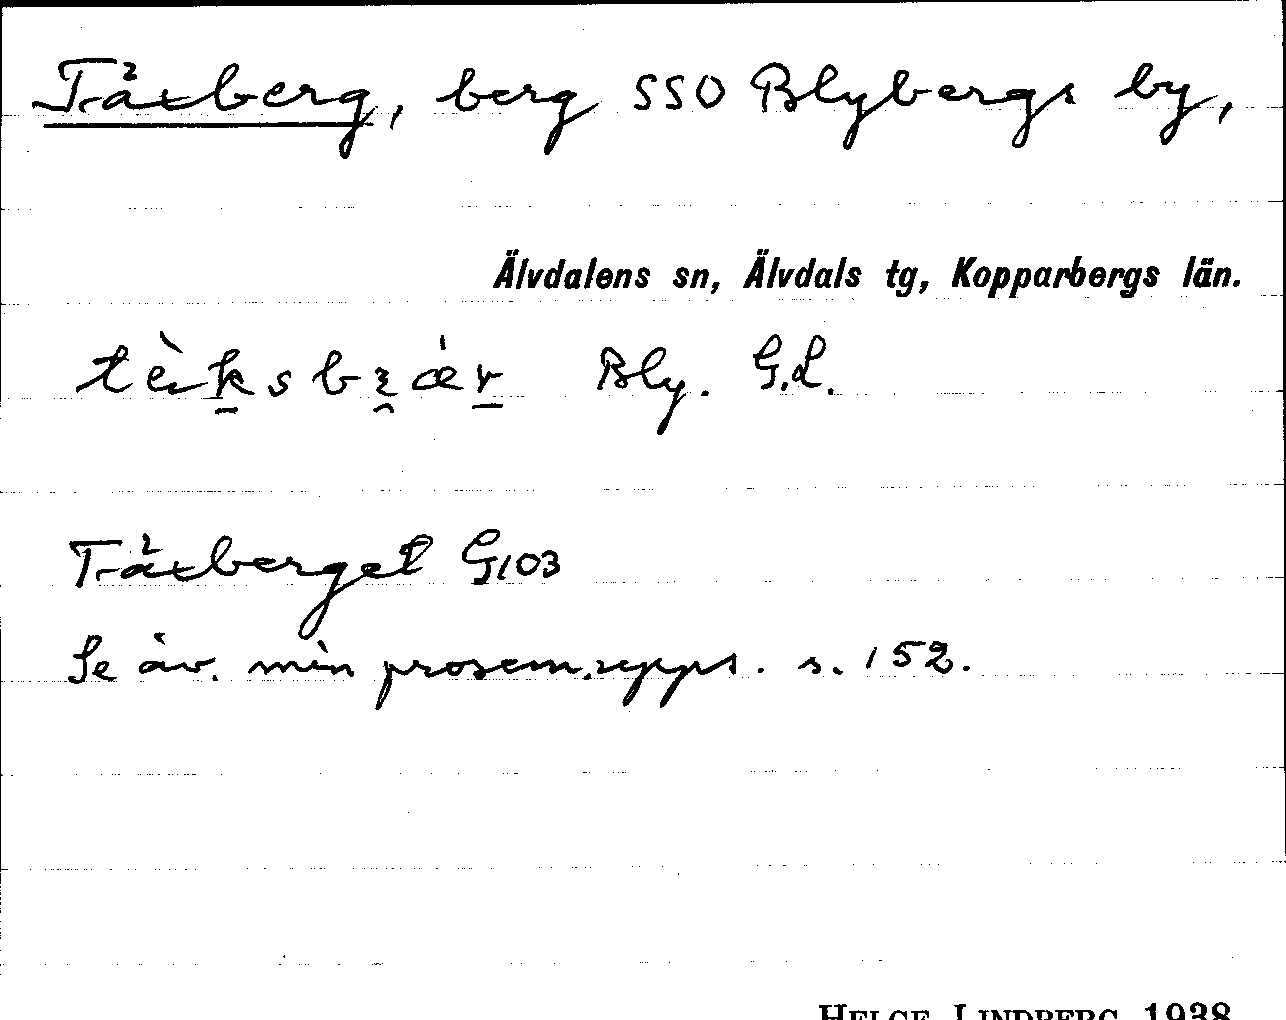 Tåxberg, berg SSO Blybergs by,
Älvdalens sn, Älvdals tg, Kopparbergs län.
Bly. G.L.
Tåxberget G103
Se äv. min prosem.upps. s. 152.
HELGE LINDBERG 1938